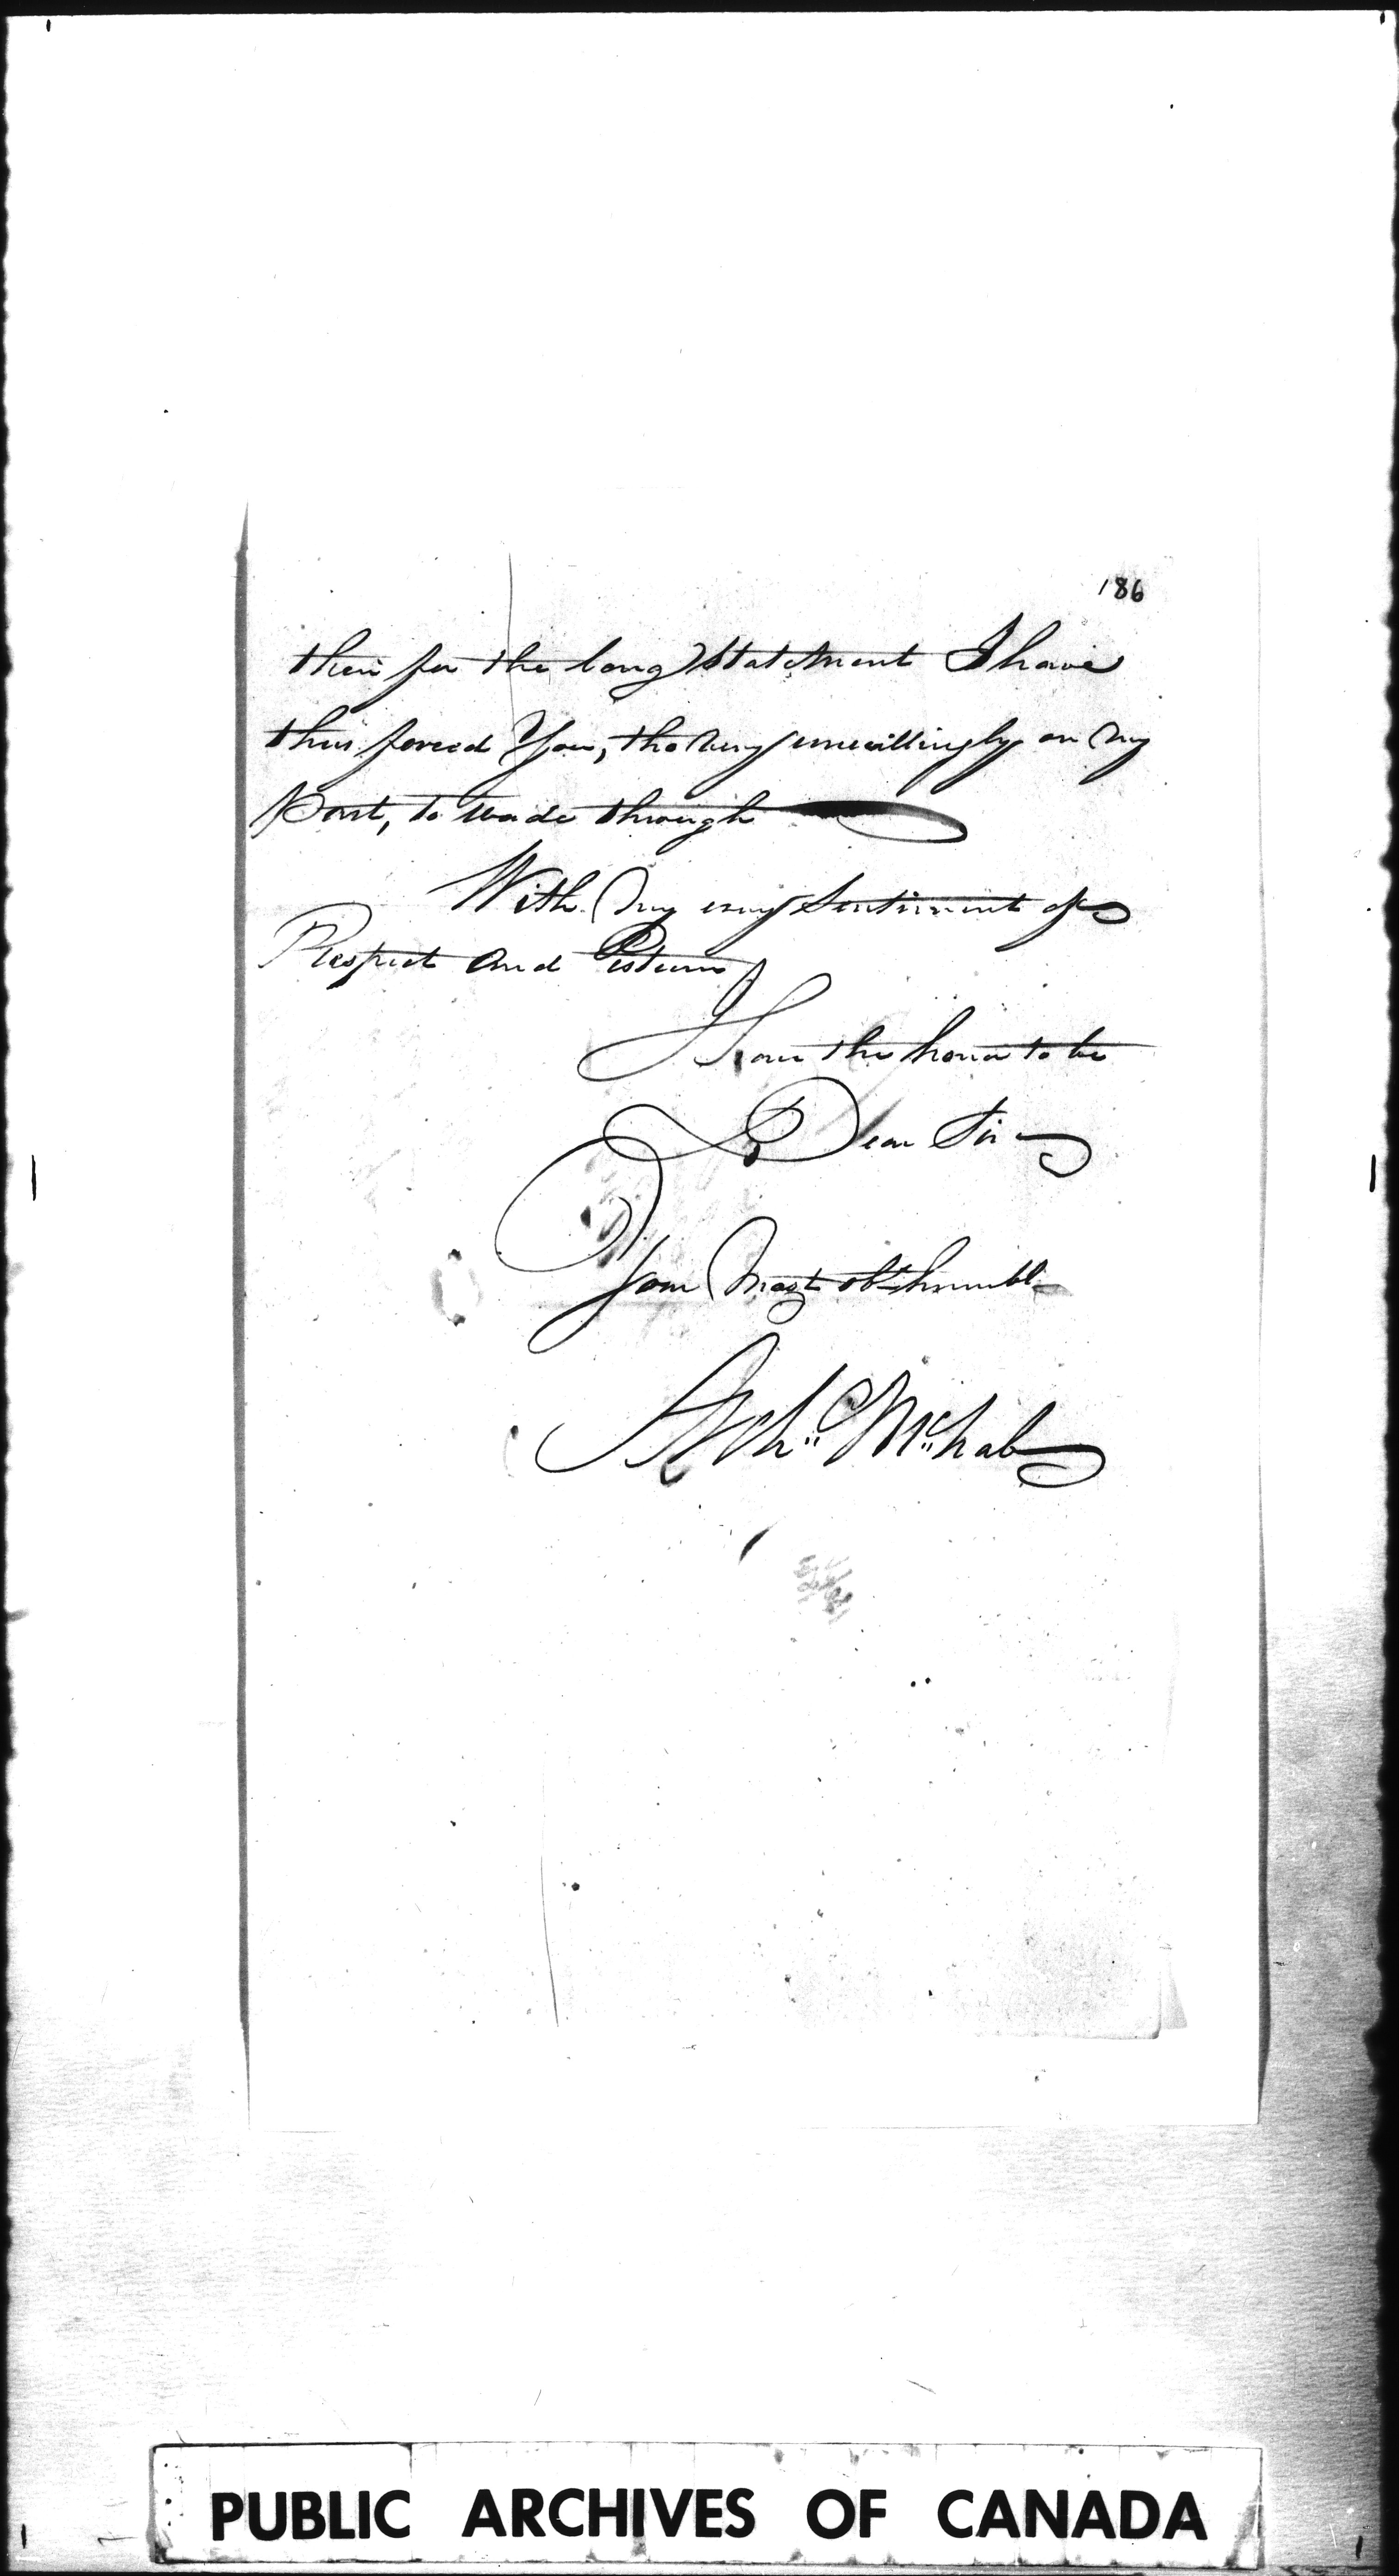 186
then for the long statement I have
thus forced You, tho very unwillingly on my
Part, to wade through
With My every Sentiment of
Respect and Esteem
I have the honor to be
Dear Sir
Your Most obt humble
Archd McNab
PUBLIC ARCHIVES OF CANADA